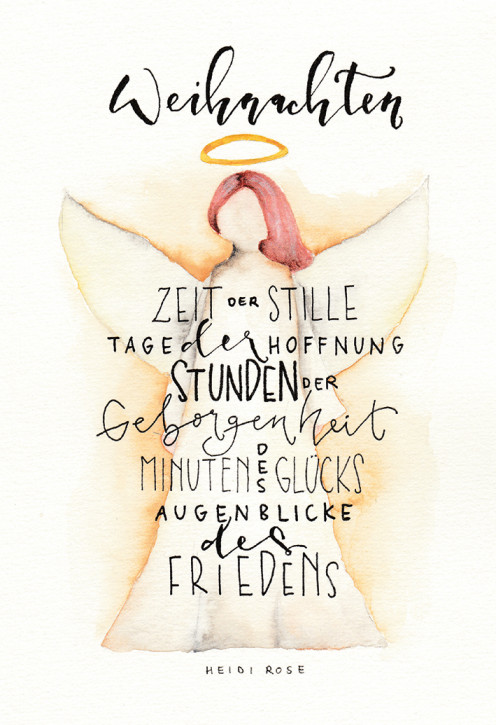 Weihnachten
ZEIT DER STILLE
TAGE der HOFFNUNG
STUNDEN DER
Geborgenheit
MINUTEN DES GLÜCKS
AUGENBLICKE
des
FRIEDENS
HEIDI ROSE